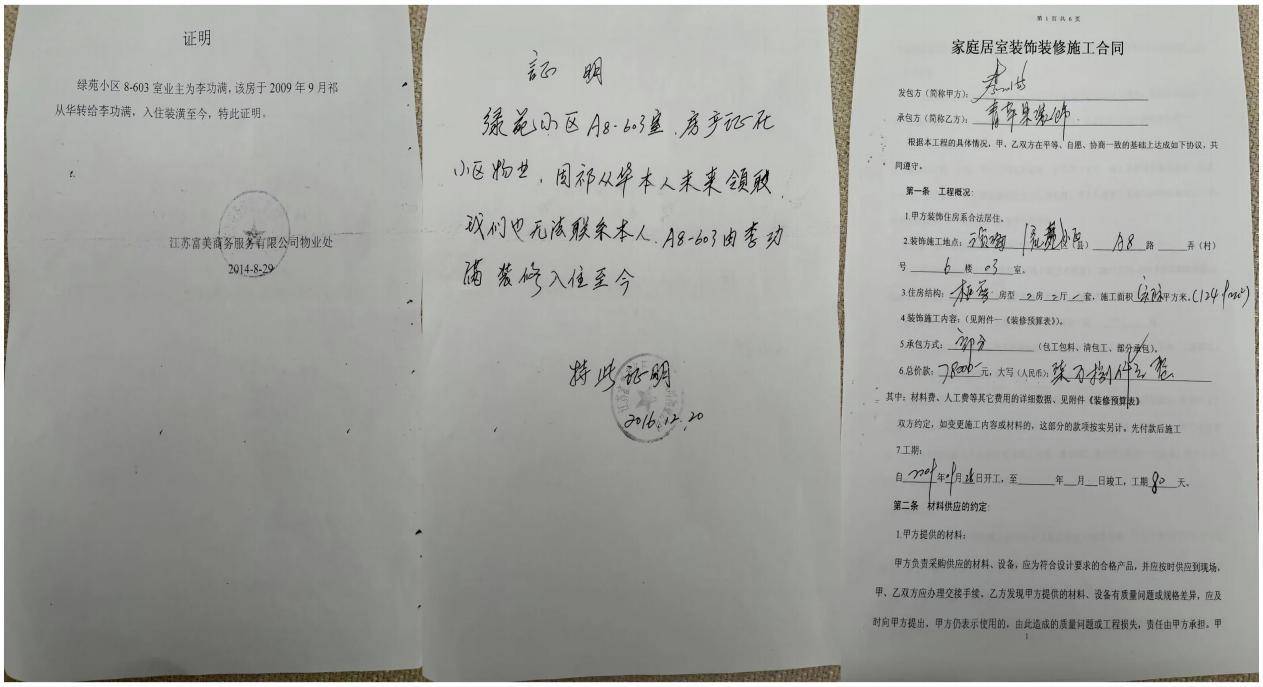 证明
绿苑小区 8-603 室业主为李功满,该房于 2009 年 9 月祁
从华转给李功满,入住装潢至今,特此证明。
江苏富美商务服务有限公司物业处
2014-8-29
証 明
绿苑小区A8-603室,房产证在
小区物业,因祁从华本人未来领取,
我们也无法联系本人,A8-603由李功
满装修入住至今
特此证明
2016.12.20
第 1 页 共 6 页
家庭居室装饰装修施工合同
发包方(简称甲方):
承包方(简称乙方):青苹果装饰
根据本工程的具体情况,甲、乙双方在平等、自愿、协商一致的基础上达成如下协议,共
同遵守。
第一条 工程概况:
1.甲方装饰住房系合法居住。
2.装饰施工地点: 县) A8 路 弄(村)
号 6 楼 03 室。
3.住房结构: 房型 2 房 2 厅 套,施工面积 平方米。(124
4.装饰施工内容:(见附件一《装修预算表》)。
5.承包方式:部分 (包工包料、清包工、部分承包)。
6.总价款:78000 元,大写(人民币):柒万捌仟元整
其中:材料费、人工费等其它费用的详细数据、见附件《装修预算表》
双方约定,如变更施工内容或材料的,这部分的款项按实另计。先付款后施工
7.工期:
自 年 月 日开工,至 年 月 日竣工,工期 80 天。
第二条 材料供应的约定:
1.甲方提供的材料:
甲方负责采购供应的材料、设备,应为符合设计要求的合格产品,并应按时供应到现场,
甲、乙双方应办理交接手续。乙方发现甲方提供的材料、设备有质量问题或规格差异,应及
时向甲方提出,甲方仍表示使用的,由此造成的质量问题或工程损失,责任由甲方承担。甲
1